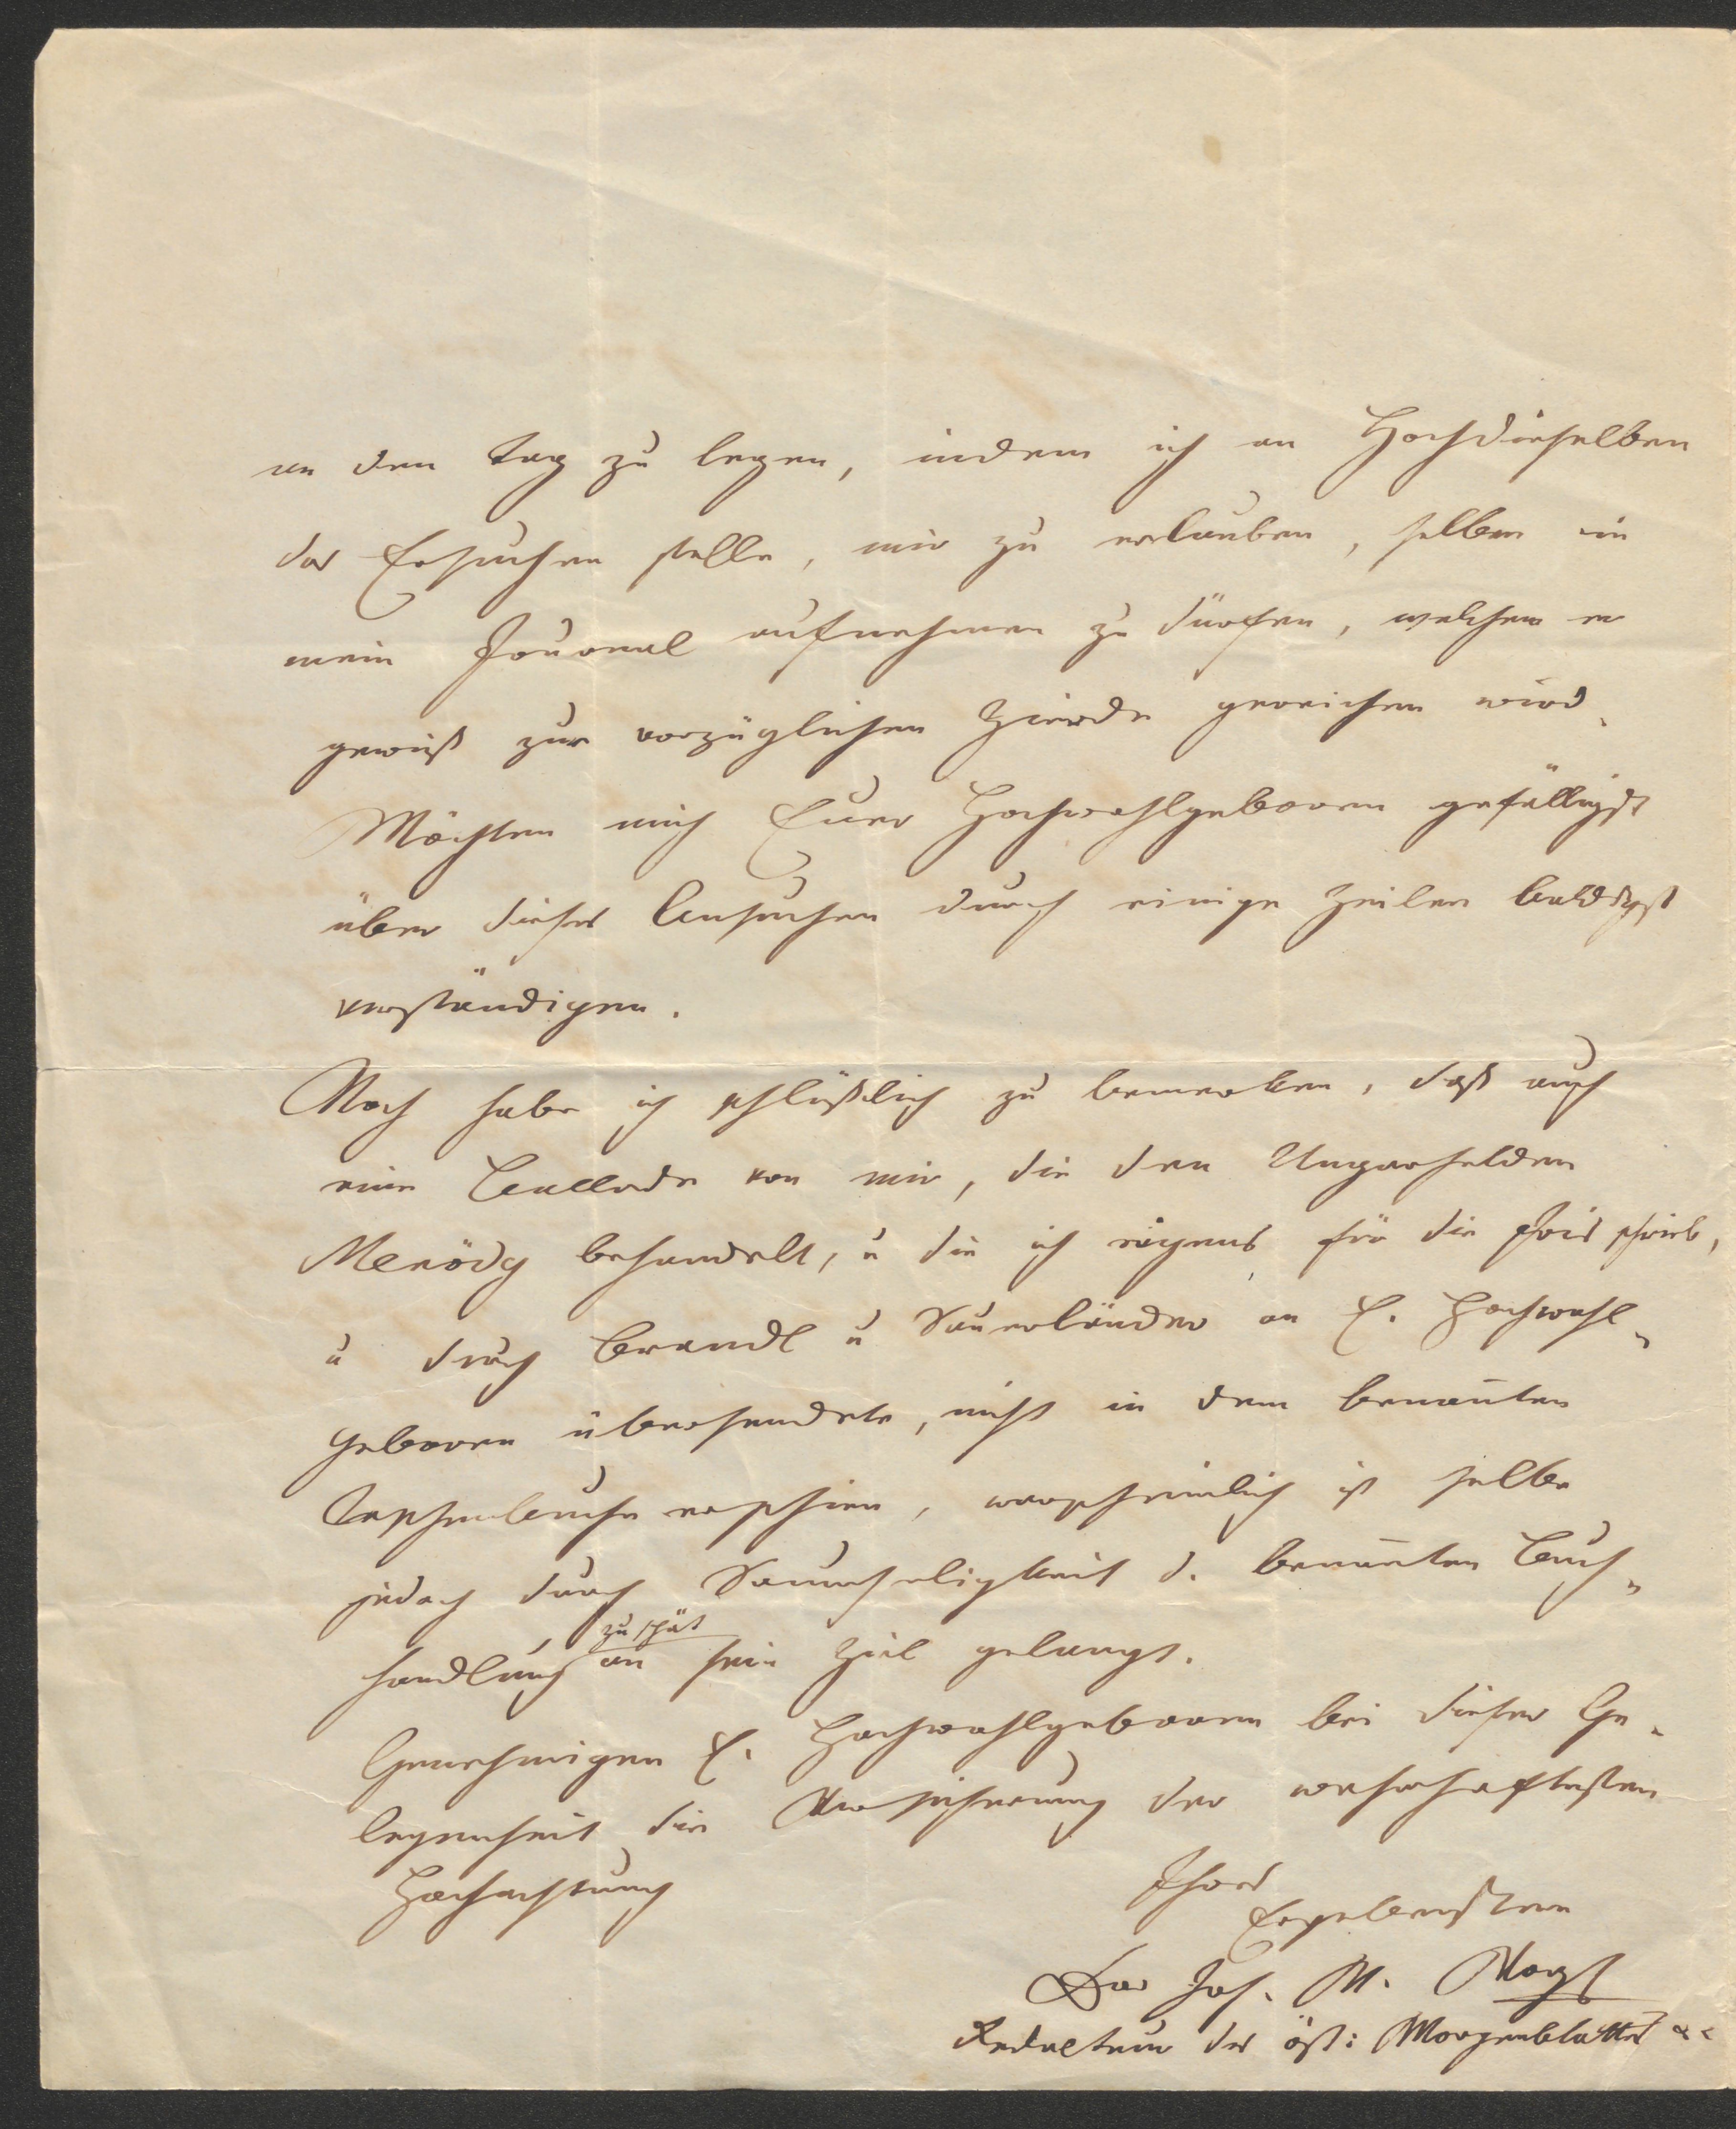 an den Tag zu legen, indem ich an Hochdieselben
das Ersuchen stelle, mir zu erlauben, selben in
mein Journal aufnehmen zu dürfen, welchem er
gewiß zur vorzüglichen Zierde gereichen wird.
Möchten mich Euer Hochwohlgeboren gefälligst
über dieses Ansuchen durch einige Zeilen baldigst
verständigen.
Noch habe ich schlüßlich zu bemerken, daß auch
eine Ballade von mir, die den Ungarhelden
behandelt, u die ich eigens für die Iris schrieb,
u durch Brandl u Sauerländer an E. Hochwohl-
geboren übersendete, nicht in dem benan̄ten
Taschenbuche erschien, warscheinlich ist selbe
jedoch durch Saumseligkeit d. benan̄ten Buch-
handlung zu spät an sein Ziel gelangt.
Genehmigen E. Hochwohlgeboren bei dieser Ge-
legenheit die Versicherung der wahrhaftesten
Hochachtung
Ihres
Ergebensten
Dor Joh. N. Vogl
Redacteur des öst: Morgenblattes